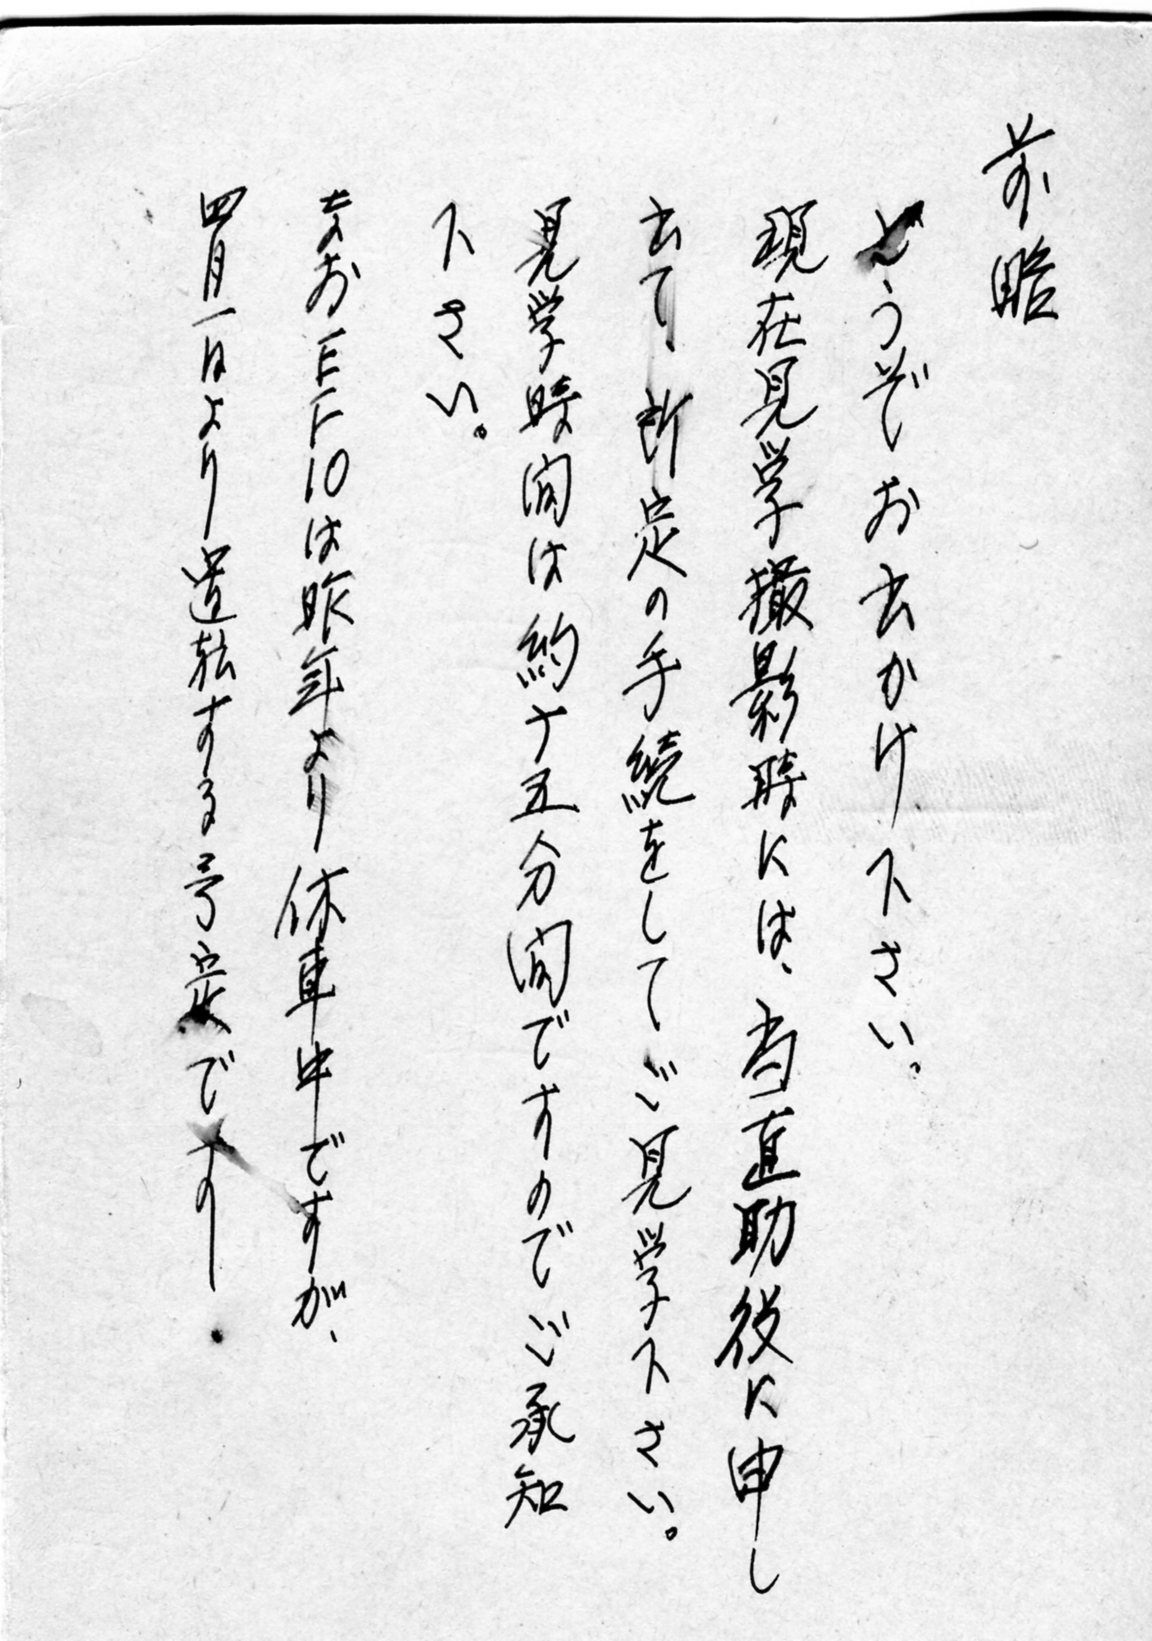 前略
どうぞお出かけ下さい。
現在見学撮影時には、当直助役に申し
出て、所定の手続をしてご見学下さい。
見学時間は約十五分間ですのでご承知
下さい。
なおEF10は昨年より休車中ですが、
四月一日より運転する予定です。